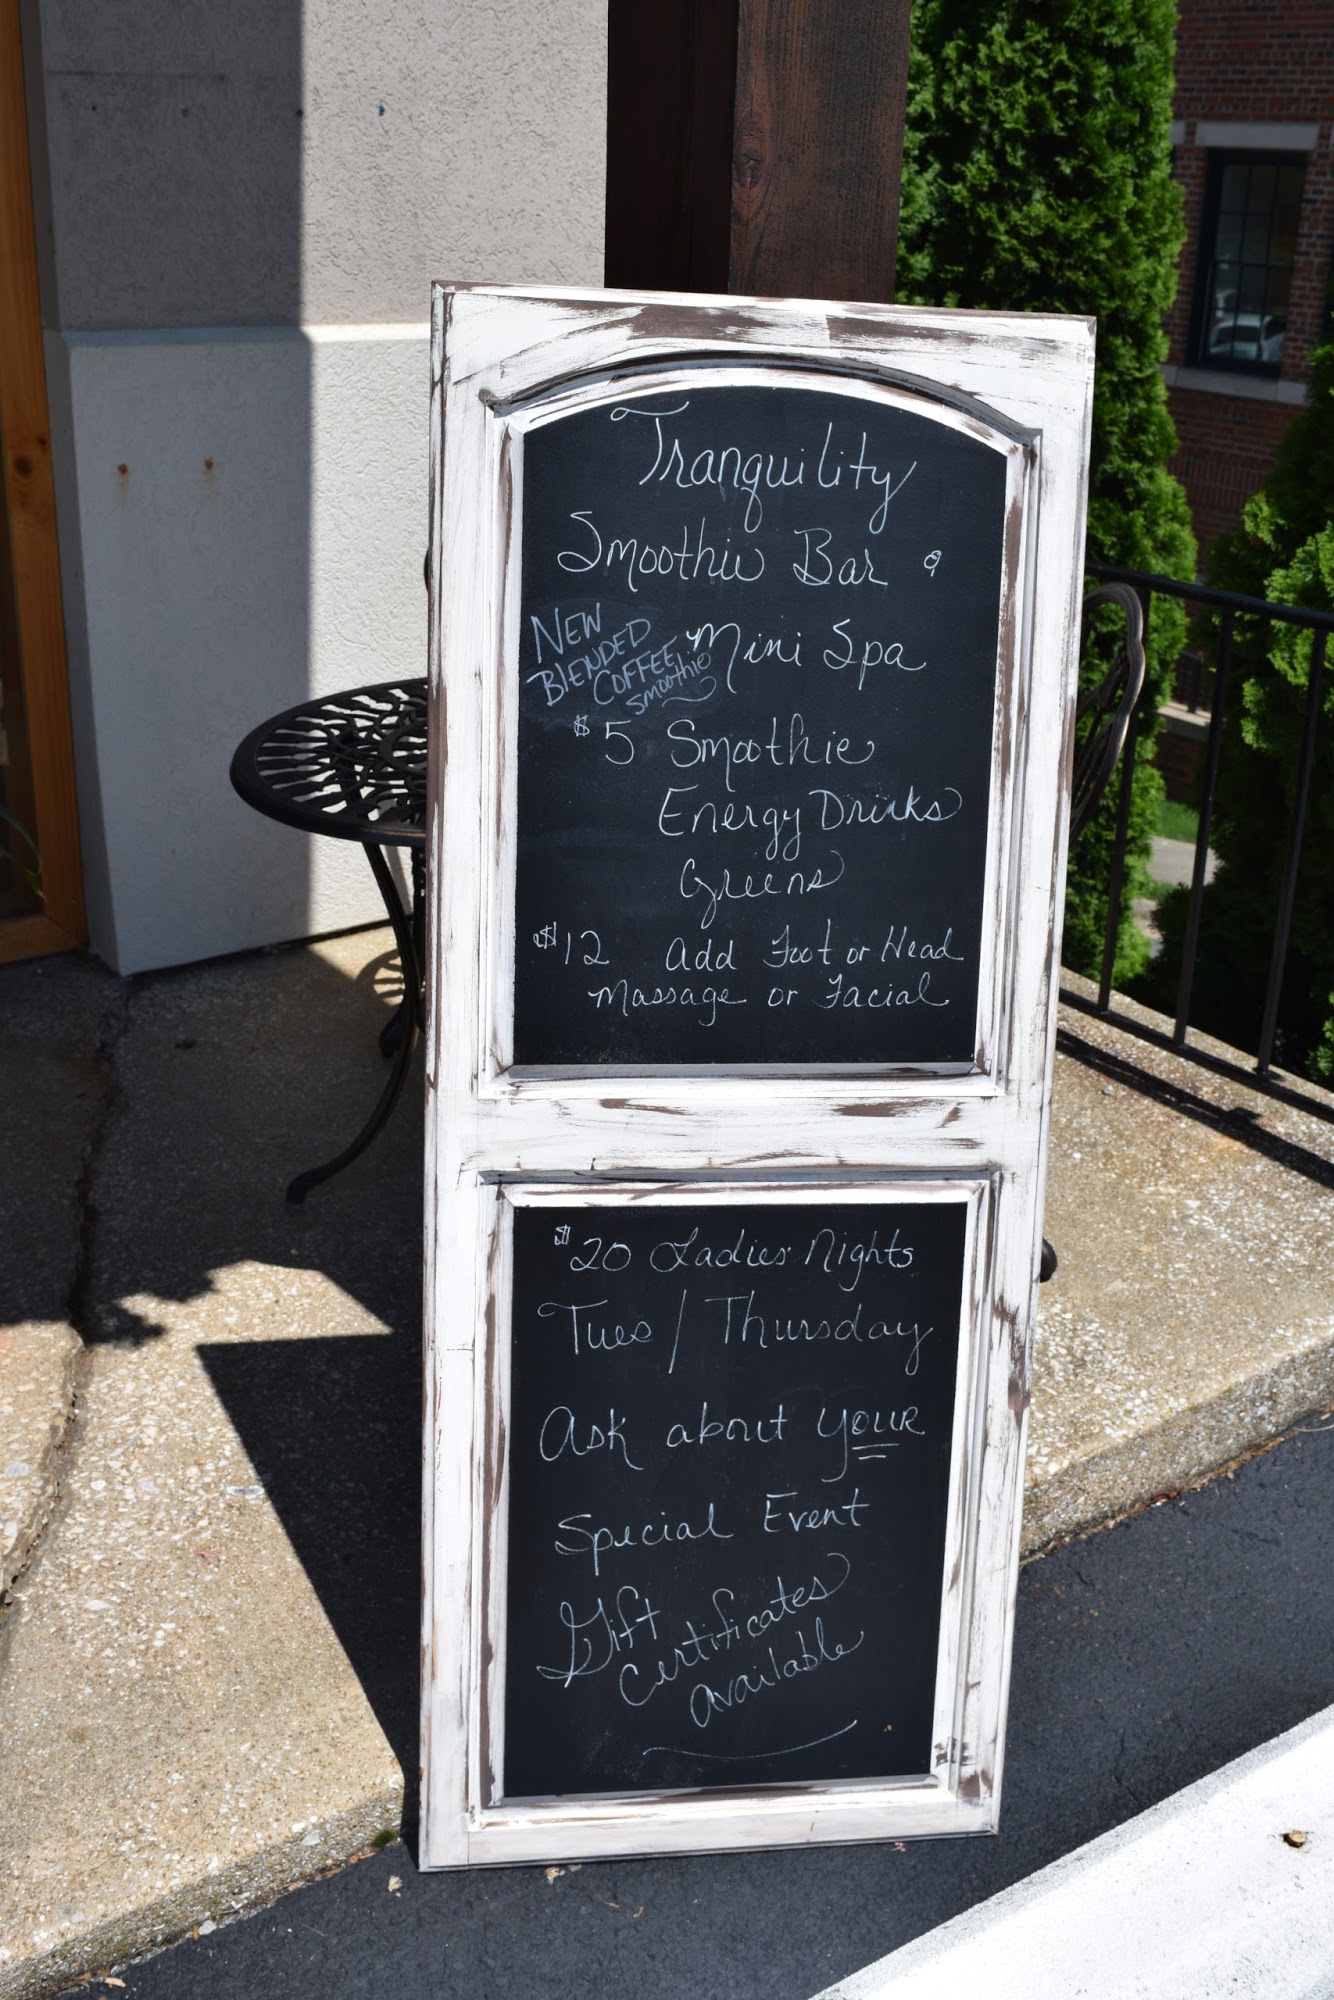 Tranquility
Smoothie Bar &
Mini Spa
NEW
BLENDED
COFFEE
Smoothie
$5 Smoothie
Energy Drinks
Greens
$12 Add Foot or Head
Massage or Facial
$20 Ladies Nights
Tues / Thursday
Ask about YOUR
Special Event
Gift
Certificates
available